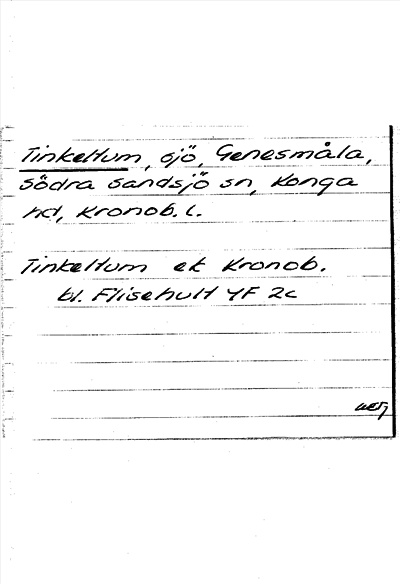 Tinkeltum, sjö, Genesmåla,
Södra Sandsjö sn, Konga
hd, Kronob. l.
Tinkeltum ek Kronob.
bl. Flisehult 4F 2c